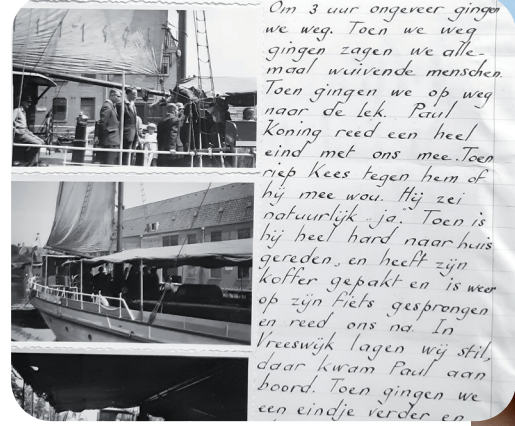 Om 3 uur ongeveer gingen
we weg. Toen we weg
gingen zagen we alle-
maal wuivende menschen.
Toen gingen we op weg
naar de Lek. Paul
Koning reed een heel
eind met ons mee. Toen
riep Kees tegen hem of
hij mee wou. Hij zei
natuurlijk ja. Toen is
hij heel hard naar huis
gereden, en heeft zijn
koffer gepakt en is weer
op zijn fiets gesprongen
en reed ons na. In
Vreeswijk lagen wij stil,
daar kwam Paul aan
boord. Toen gingen we
een eindje verder en